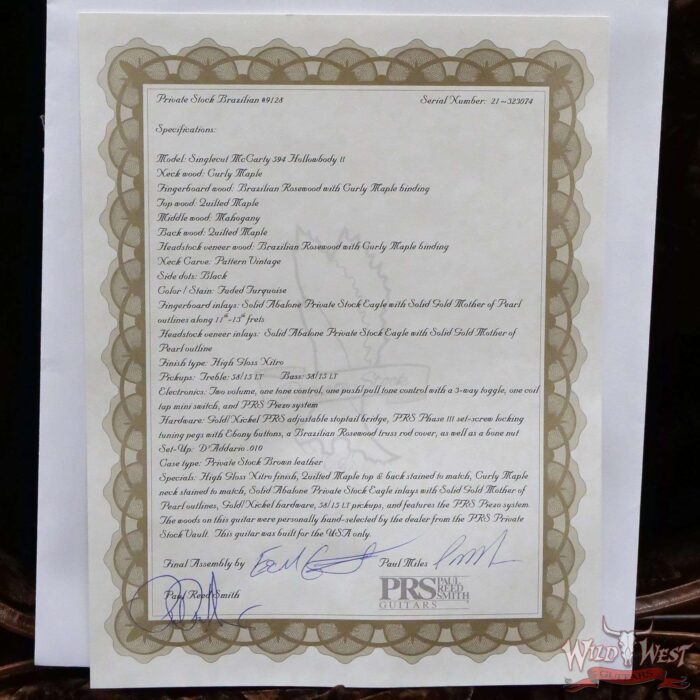 Private Stock Brazilian #9128 Serial Number: 21-323074
Specifications:
Model: Singlecut McCarty 594 Hollowbody II
Neck wood: Curly Maple
Fingerboard wood: Brazilian Rosewood with Curly Maple binding
Top wood: Quilted Maple
Middle wood: Mahogany
Back wood: Quilted Maple
Headstock veneer wood: Brazilian Rosewood with Curly Maple binding
Neck Carve: Pattern Vintage
Side dots: Black
Color / Stain: Faded Turquoise
Fingerboard inlays: Solid Abalone Private Stock Eagle with Solid Gold Mother of Pearl
outlines along 11th-13th frets
Headstock veneer inlays: Solid Abalone Private Stock Eagle with Solid Gold Mother of
Pearl outline
Finish type: High Gloss Nitro
Pickups: Treble: 58/15 LT Bass: 58/15 LT
Electronics: Two volume, one tone control, one push/pull tone control with a 3-way toggle, one coil
tap mini switch, and PRS Piezo system
Hardware: Gold/Nickel PRS adjustable stoptail bridge, PRS Phase III set-screw locking
tuning pegs with Ebony buttons, a Brazilian Rosewood truss rod cover, as well as a bone nut
Set-Up: D'Addario .010
Case type: Private Stock Brown leather
Specials: High Gloss Nitro finish, Quilted Maple top & back stained to match, Curly Maple
neck stained to match, Solid Abalone Private Stock Eagle inlays with Solid Gold Mother of
Pearl outlines, Gold/Nickel hardware, 58/15 LT pickups, and features the PRS Piezo system
The woods on this guitar were personally hand-selected by the dealer from the PRS Private
Stock Vault. This guitar was built for the USA only.
Final Assembly by Paul Miles
Paul Reed Smith
PRS PAUL REED SMITH
GUITARS
WILD WEST
GUITARS